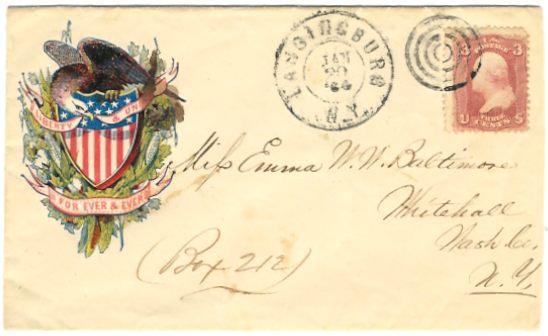 LIBERTY & UN
FOR EVER & EVER
LANSINGBURG
JAN
20
N.Y.
3 3
POSTAGE
U S
THREE
CENTS
Miss Emma W. W. Baltimore
Whitehall
Wash Co.
N.Y.
(Box 212)